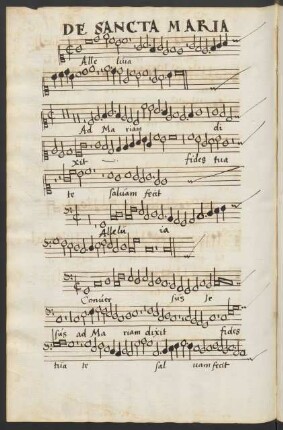 DE SANCTA MARIA
Alle luia
Ad Ma riam di
xit fides tua
te salvam fecit
Allelu ia
Conver sus Ie
sus ad Ma riam dixit fides
tua te sal vam fecit